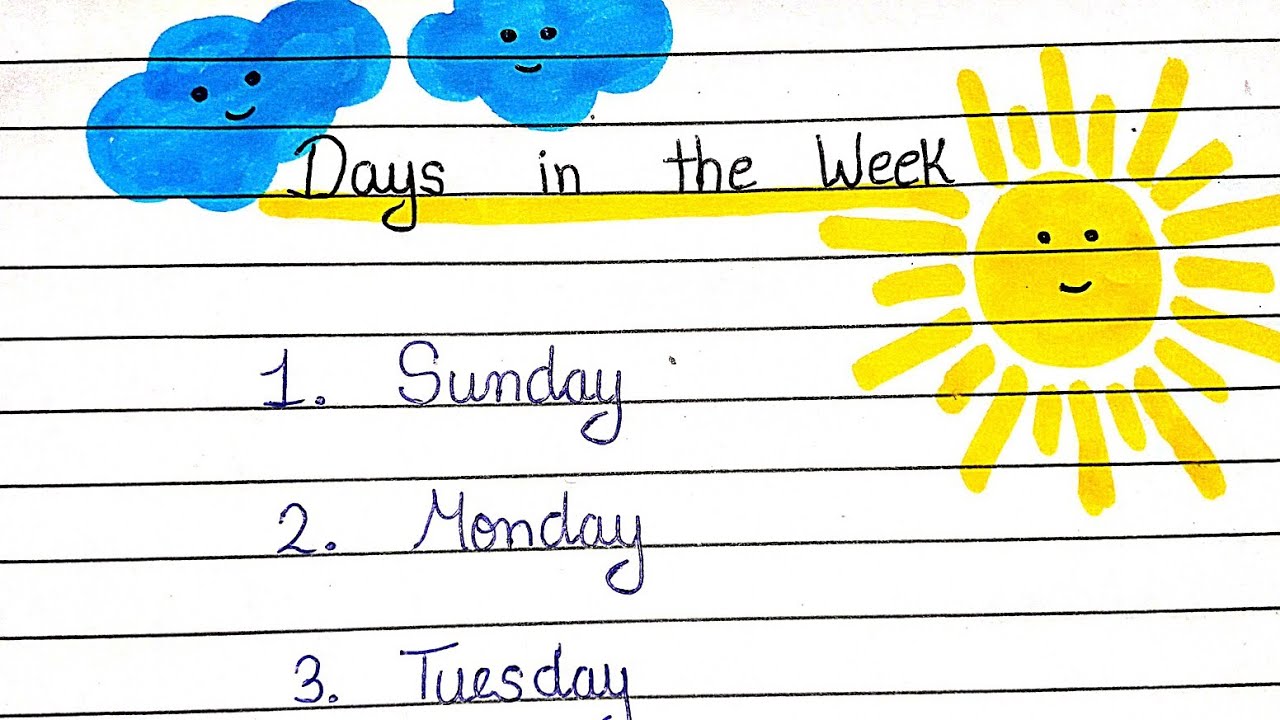 Days in the Week
1. Sunday
2. Monday
3. Tuesday